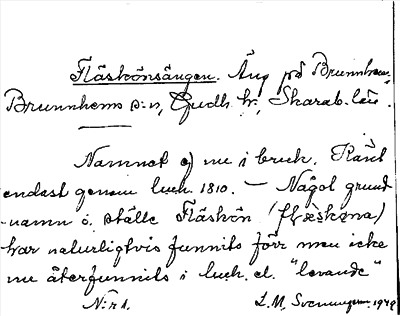 Fläskönsängen. Äng på Brunnhem,
Brunnhems s:n, Gudh. hd, Skarab. län.
Namnet ej nu i bruk. Känt
endast genom luk. 1810. — Något grund-
namn å ställe Fläskön (flæskøna)
har naturligtvis funnits förr men icke
nu återfunnits i luk. el. "levande"
N:r 1. L. M. Svenungsson 1948